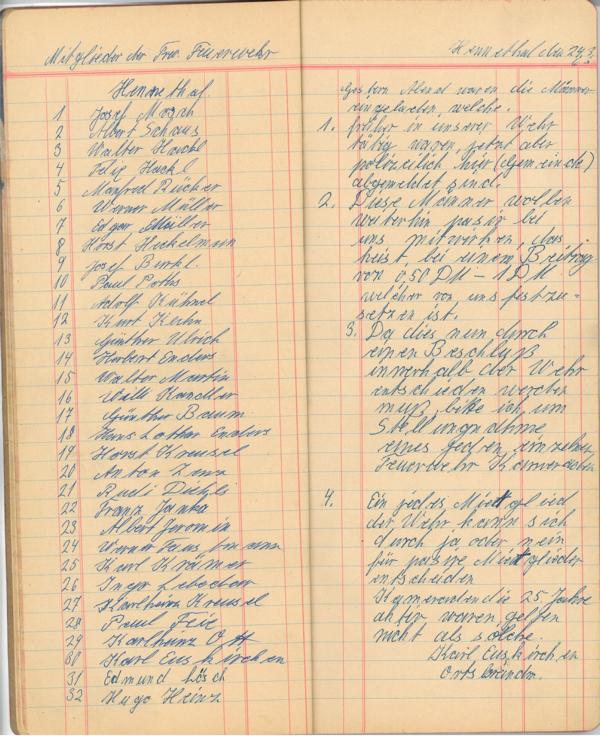 Mitglieder der Frw. Feuerwehr
Hennethal
1 Josef Mosch
2 Albert Schaus
3 Walter Hackl
4 Felix Hackl
5 Manfred Bücher
6 Werner Müller
7 Edgar Müller
8 Horst Heckelmann
9 Josef Birkl.
10 Paul Poths
11 Adolf Kühnel
12 Kurt Kuhn
13 Günther Ulrich
14 Herbert Enders
15 Walter Martin
16 Willi Kandler
17 Günther Baum
18 Hans Lothar Enders
19 Horst Kreusel
20 Anton Zenz
21 Rudi Diehl
22 Franz Janka
23 Albert Jeromin
24 Werner
25 Kurl Krämer
26 Ingo
27 Karlheinz Kreusel
28 Paul Feix
29 Karlheinz Ott
30 Karl Euskirchen
31 Edmund Lösch
32 Hugo Heinz
Hennethal den 24.3.
Gestern Abend waren die Männer
eingeladen welche.
1. früher in unserer Wehr
tätig waren, jetzt aber
polizeilich hier (Gemeinde)
abgemeldet sind.
2. Diese Männer wollen
weiterhin pasiv bei
uns mitwirken, das
heist, bei einem Beitrag
von 0,50 DM – 1 DM
welcher von uns festzu=
setzen ist.
3. Da dies nun durch
einen Beschluß
innerhalb der Wehr
entschieden werden
muß, bitte ich um
Stellungnahme
eines jeden einzelnen
Feuerwehr Kameraden
4. Ein jedes Mittglied
der Wehr kann sich
durch ja oder nein
für pasive Mittglieder
entscheiden
Kameraden die 25 Jahre
aktiv waren, gelten
nicht als solche.
Karl Euskirchen
Ortsbrandm.